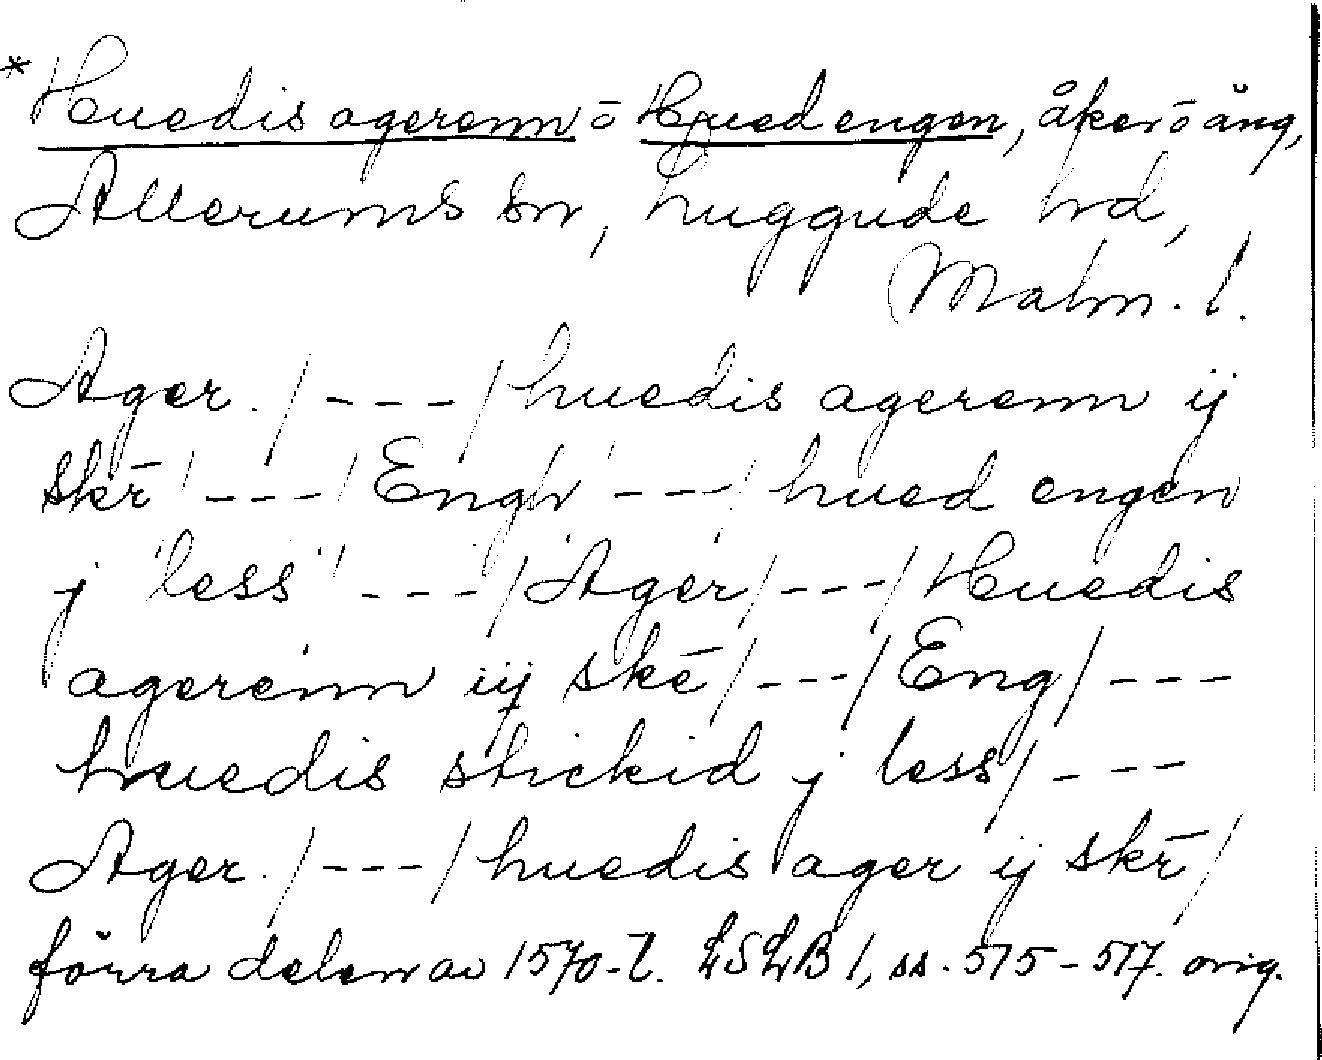 * Huedis agerenn o Hued engen, åker o äng,
Allerums sn, Luggude hd,
Malm. l.
Ager. /---/ huedis agerenn ij
skr /---/ Engh /---/ hued engen
j less /---/ Ager /---/ Huedis
agerenn iij skr /---/ Eng /---
huedis stickid j less /---
Ager. /---/ huedis ager ij skr /
förra delen av 1570-t. LSLB 1, ss. 575-577. orig.